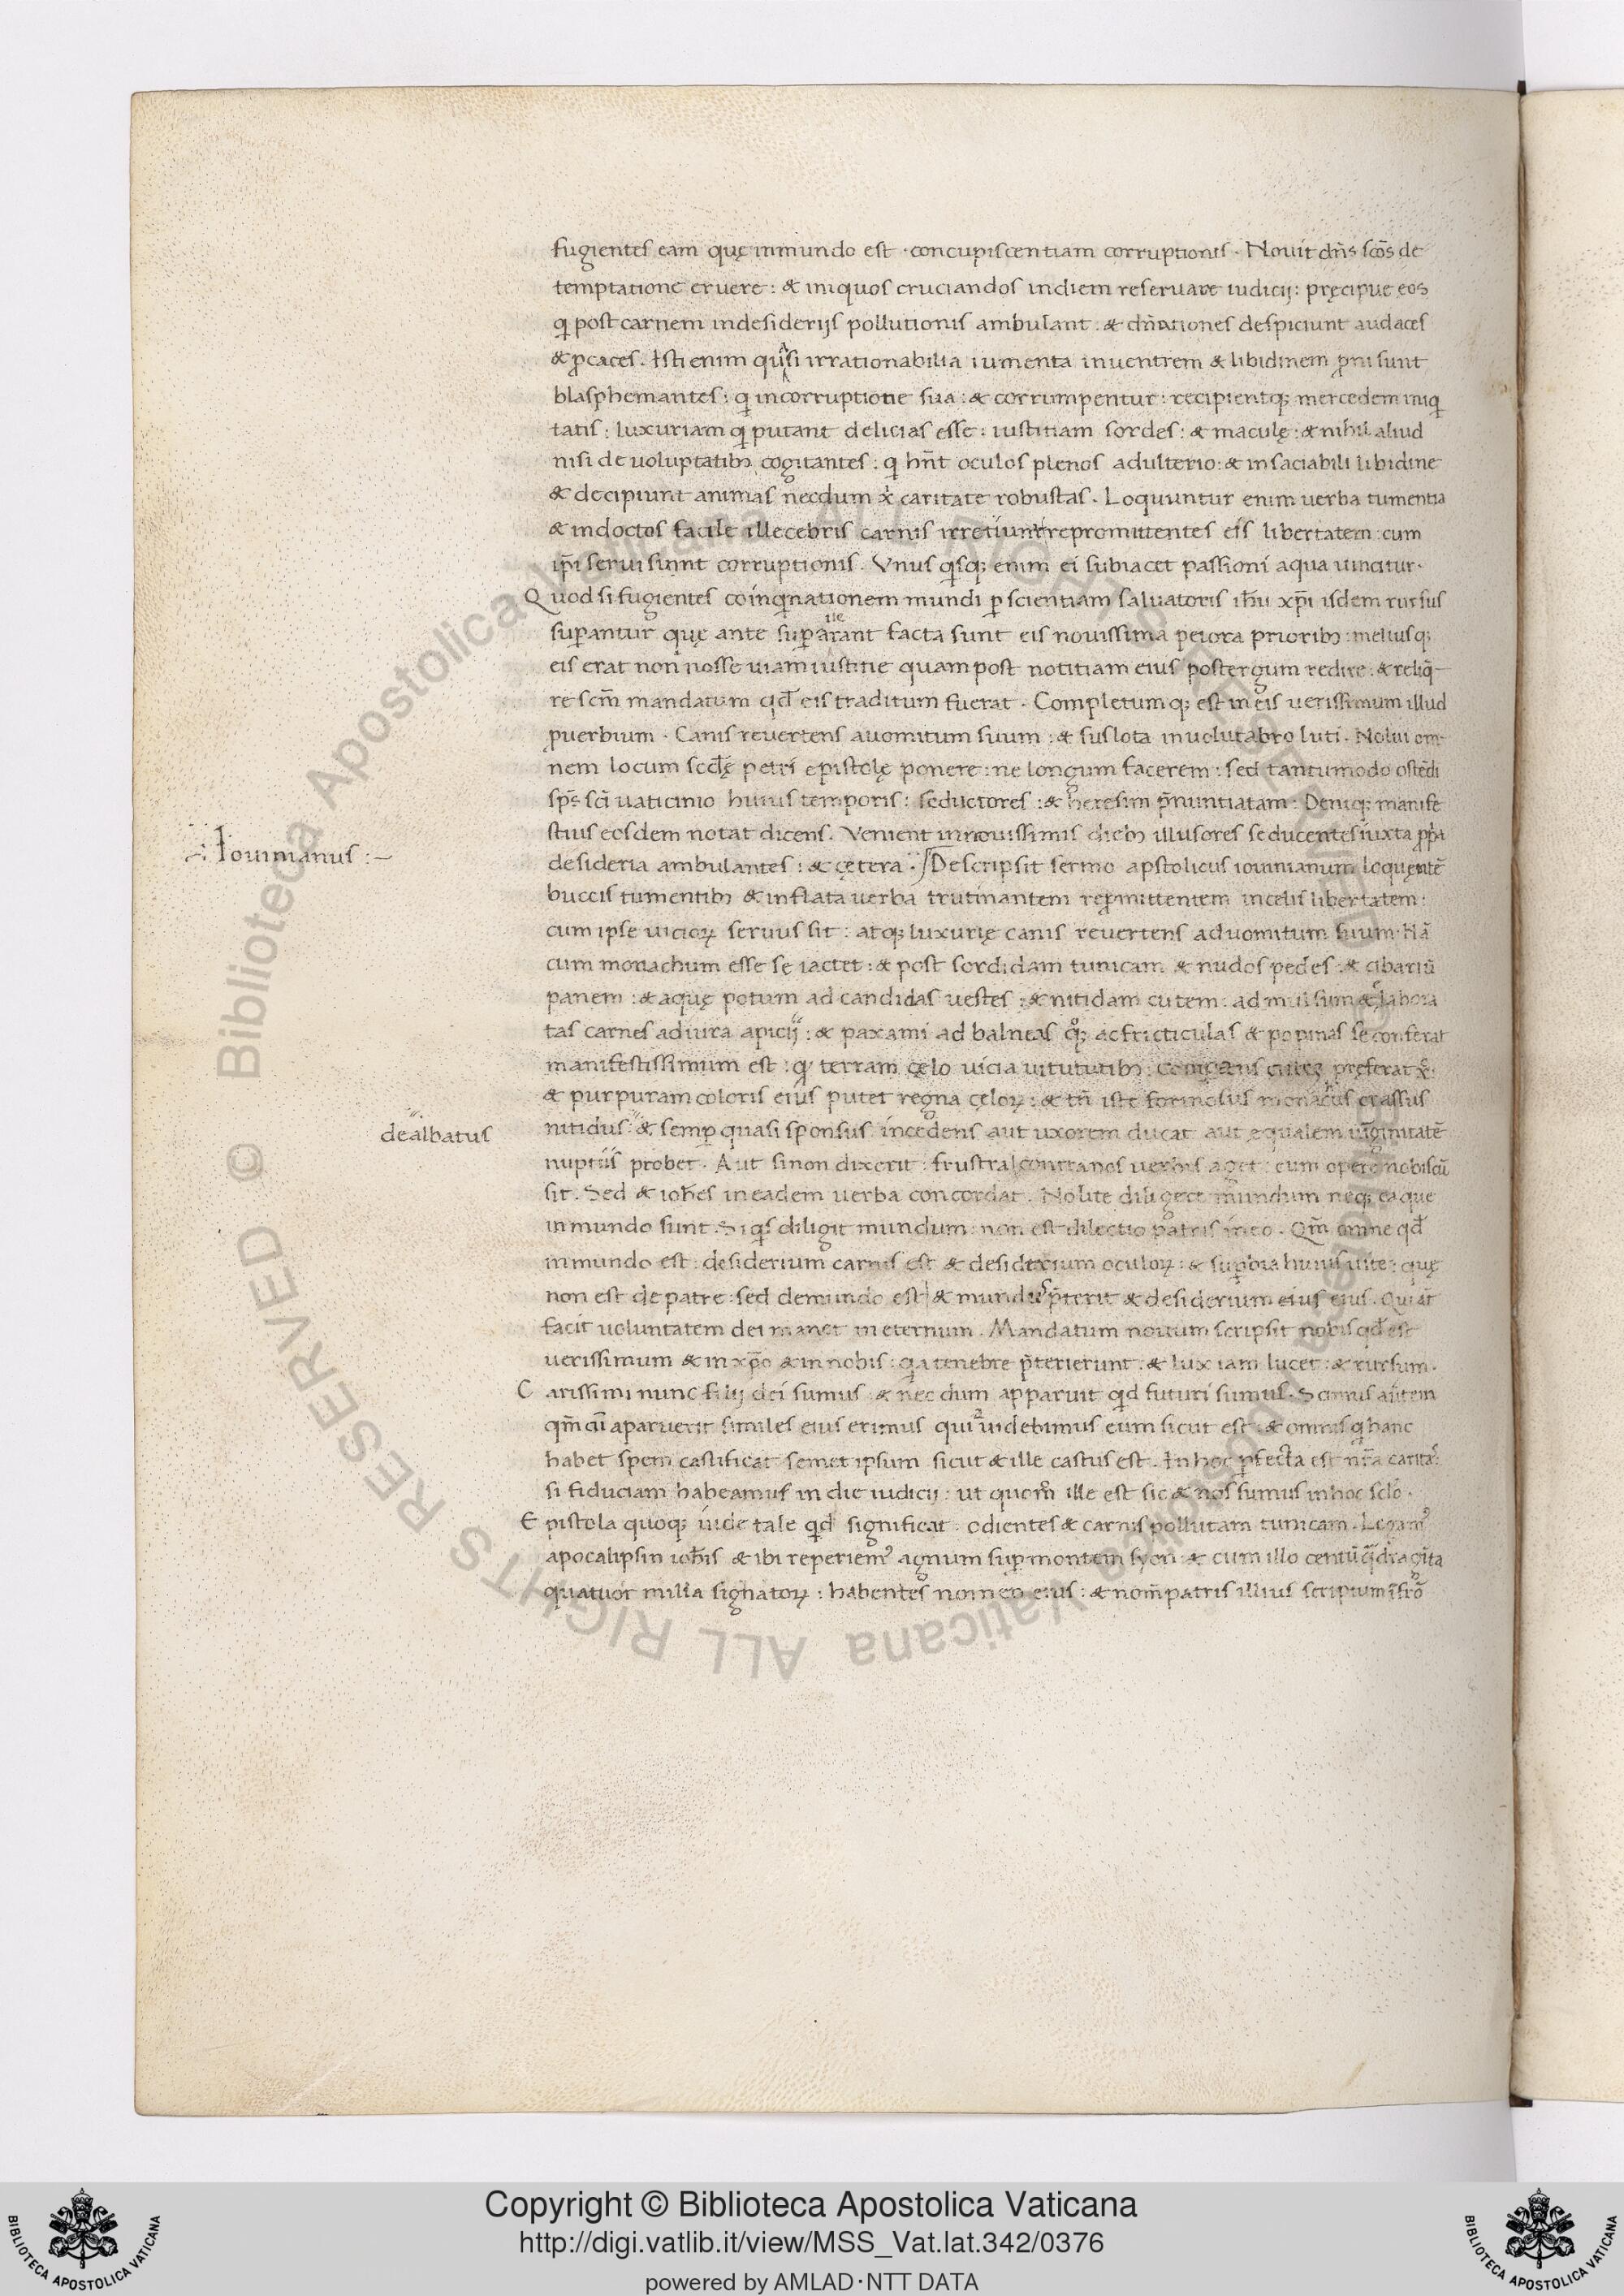 fugientes eam quę inmundo est · concupiscentiam corruptionis · Nouit dñs scōs de
temptatione eruere : & iniquos cruciandos indiem reseruare iudicij : pręcipue eos
q post carnem indesiderijs pollutionis ambulant : & dñationes despiciunt audaces
& pcaces . Isti enim quasi irrationabilia iumenta inuentrem & libidinem proni sunt
blasphemantes : q incorruptione sua : & corrumpentur : recipientq; mercedem iniq
tatis : luxuriam q putant delicias esse : iustitiam sordes : & maculę : & nihil aliud
nisi de uoluptatib; cogitantes : q hñt oculos plenos adulterio : & insaciabili libidine
& decipiunt animas necdum x̄ caritate robustas . Loquuntur enim uerba tumentia
& indoctos facile illecebris carnis irretiunt repromittentes eis libertatem : cum
ip̄i serui siunt corruptionis . Vnus qsq; enim ei subiacet passioni aqua uincitur ·
Quod si fugientes coinqnationem mundi p scientiam saluatoris ih̄u xp̄i isdem rursus
supantur quę ante suparant facta sunt eis nouissima peiora priorib; : meliusq;
eis erat non nosse uiam iustitie quam post notitiam eius postergum redire : & reliq̄
re scm̄ mandatum qd̄ eis traditum fuerat · Completumq; est in eis uerissimum illud
puerbium · Canis reuertens auomitum suum : & sus lota inuolutabro luti · Nolui om
nem locum scd̄ę petri epistolę ponere : ne longum facerem : sed tantumodo ostēdi
sp̄s sci uaticinio huius temporis : seductores : & heresim p̄nuntiatam : Deniq; manife
stius eosdem notat dicens . Venient innouissimis dieb; illusores seducentes iuxta ppia
∴ Iouinianus : ~
desideria ambulantes : & cętera · Descripsit sermo apstolicus iouinianum loquentē
buccis tumentib; & inflata uerba trutinantem repmittentem incelis libertatem :
cum ipse uicioꝝ seruus sit : atq; luxurię canis reuertens aduomitum suum · Nā
cum monachum esse se iactet : & post sordidam tunicam & nudos pedes : & cibariū
panem : & aquę potum ad candidas uestes : & nitidam cutem : ad mulsum & labora
tas carnes adiura apicij : & paxami ad balneas qq; acfricticulas & popinas se conferat
manifestissimum est : q terram cęlo uicia uitututib; pręferat
& purpuram coloris eius putet regna cęloꝝ : & tn̄ iste formosus monacus crassus
dealbatus
nitidus & semp quasi sponsus incedens aut uxorem ducat aut equalem uirginitatē
nuptiis probet · Aut sinon dixerit : frustra contra nos uerbis aget : cum opere nobiscū
sit . Sed & ioh̄es ineadem uerba concordat . Nolite diligere mundum neq; ea que
inmundo sunt . Si qs diligit mundum : non est dilectio patris ineo . Qm̄ omne qd̄
inmundo est : desiderium carnis est & desiderium oculoꝝ : & supbia huius uite : quę
non est de patre : sed demundo est & mundus p̄terit & desiderium eius eius . Qui at̄
facit uoluntatem dei manet in eternum . Mandatum nouum scripsit nobis qd̄ est
uerissimum & in xp̄o & in nobis : qa tenebre p̄terierunt : & lux iam lucet : & rursum .
Carissimi nunc filij dei sumus : & nec dum apparuit qd futuri sumus . Scimus autem
qm̄ cū aparuerit similes eius erimus uidebimus eum sicut est : & omnis q hanc
habet spem castificat semet ipsum sicut & ille castus est . In hoc pfecta est nr̄a caritas
si fiduciam habeamus in die iudicij : ut quom̄ ille est sic & nos sumus inhoc sclo .
Epistola quoq; iude tale qd significat . odientes & carnis pollutam tunicam . Legam
apocalipsin ioh̄is & ibi reperiem agnum sup montem syon : & cum illo centū q̄dragīta
quatuor milia signatoꝝ : habentes nomen eius : & nom̄ patris illius scriptum ī frō
Copyright © Biblioteca Apostolica Vaticana
http://digi.vatlib.it/view/MSS_Vat.lat.342/0376
powered by AMLAD·NTT DATA
BIBLIOTECA APOSTOLICA VATICANA
BIBLIOTECA APOSTOLICA VATICANA
© Biblioteca Apostolica Vaticana ALL RIGHTS RESERVED